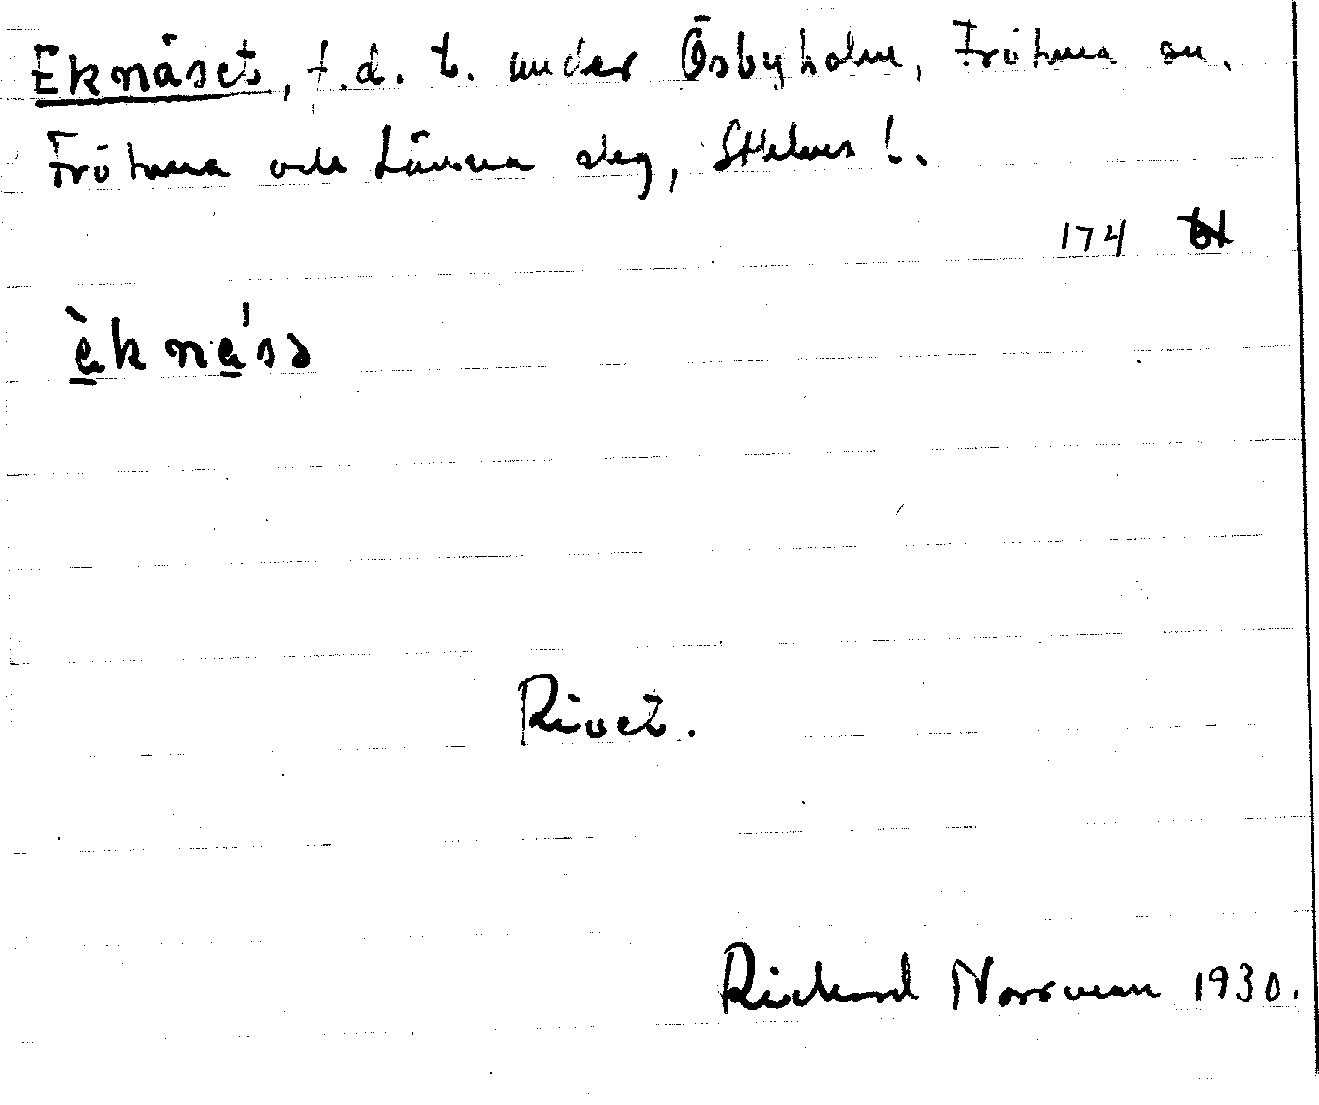 Eknäset, f.d. t. under Ösbyholm, Frötuna sn.
Frötuna och Länna slag, Sthlms l.
174
èknés̀ə
Rivet.
Rickard Norrman 1930.